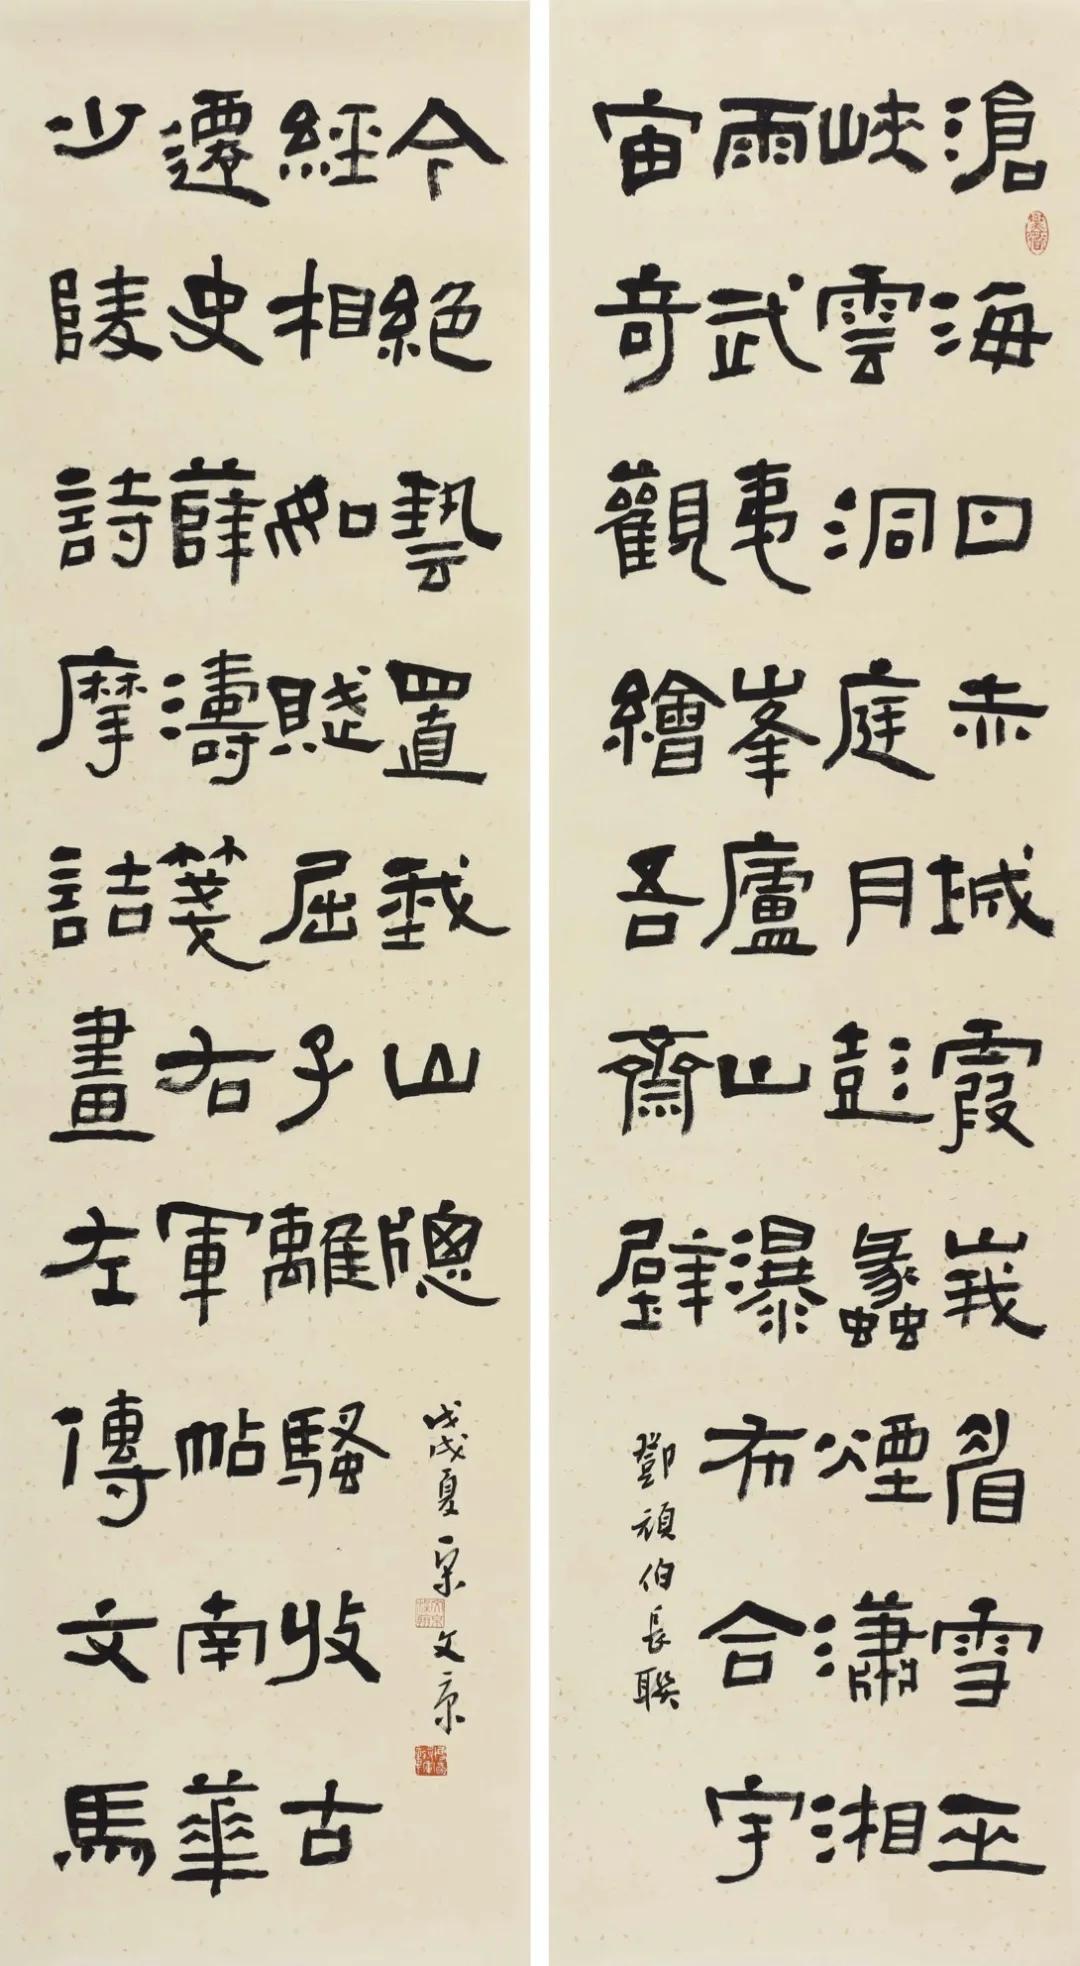 滄海日赤城霞峩眉雪巫
峽雲洞庭月彭蠡煙瀟湘
雨武夷峯廬山瀑布合宇
宙奇觀繪吾齋壁
鄧頑伯長聯
少陵詩摩詰畫左傳文馬
遷史薛濤箋右軍帖南華
經相如賦屈子離騷收古
今絕藝置我山牕
戊戌夏宋文京